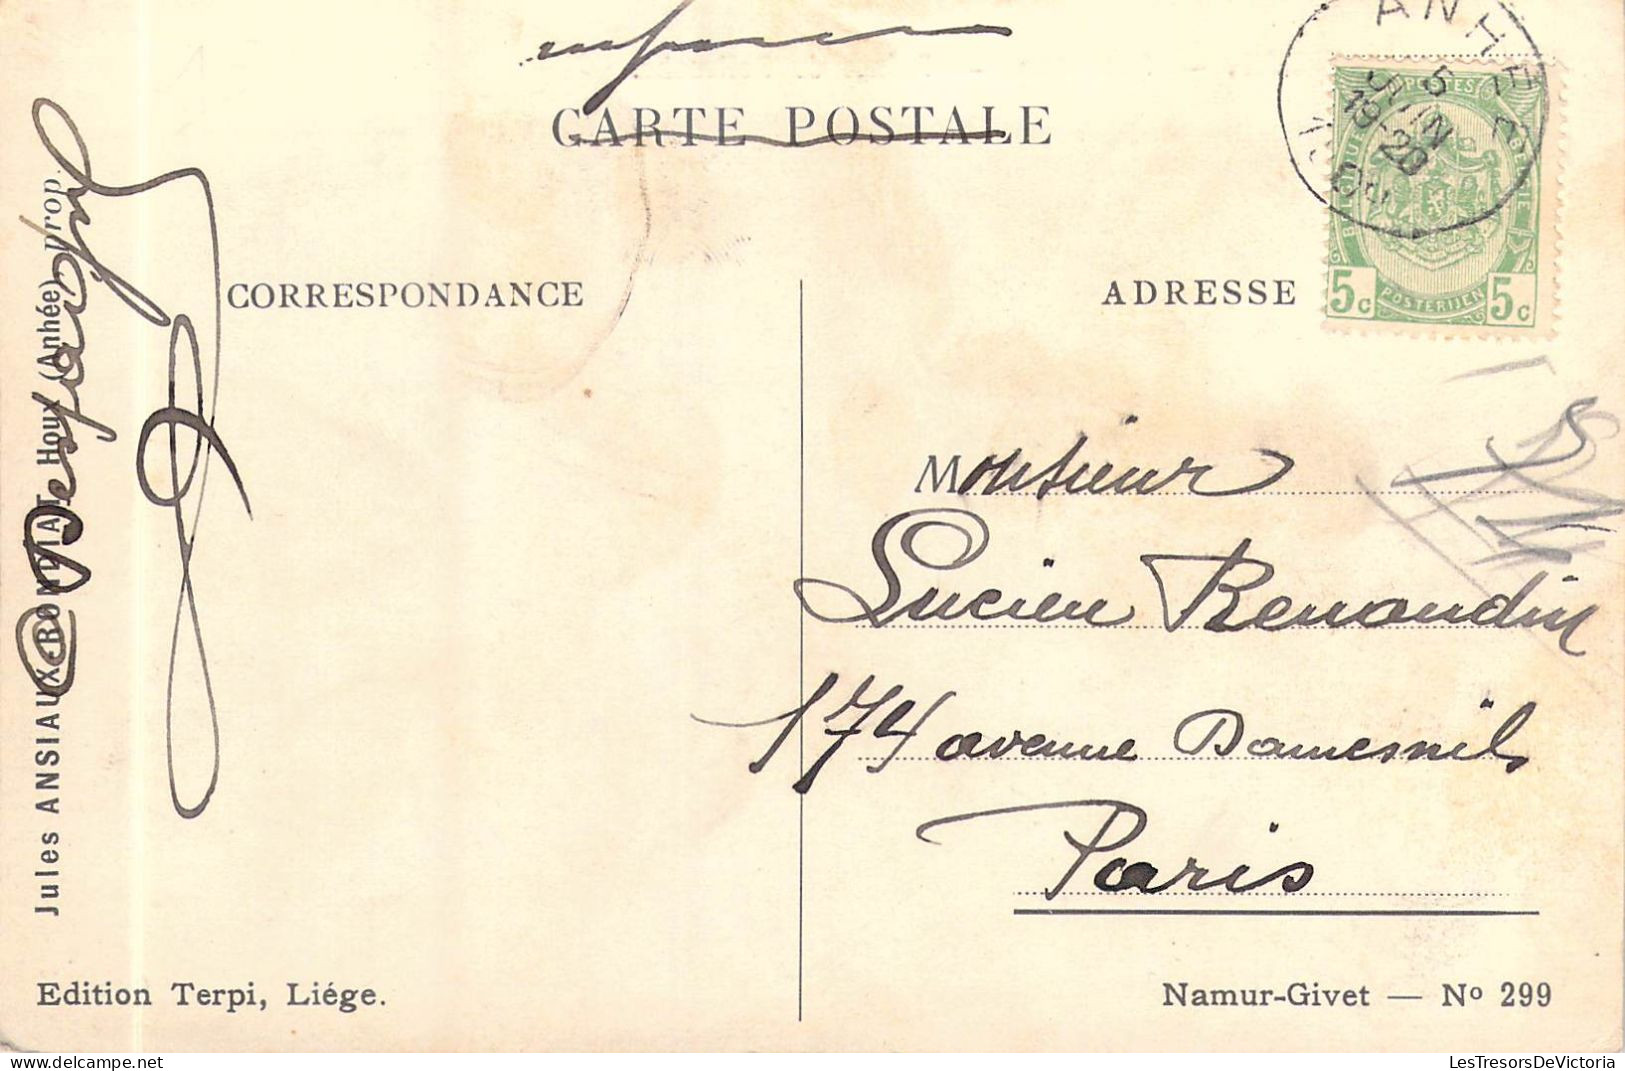 ANHÉE
5
JUIN
19-20
1909
CARTE POSTALE
POSTES
BELGIQUE
BELGIË
5c
POSTERIJEN
5c
CORRESPONDANCE
ADRESSE
Monsieur
Lucien Renaudin
174 avenue Daumesnil
Paris
Jules ANSIAUX-ROMDIAT, Houx (Anhée) prop.
Edition Terpi, Liége.
Namur-Givet — No 299
delcampe.net
LesTresorsDeVictoria